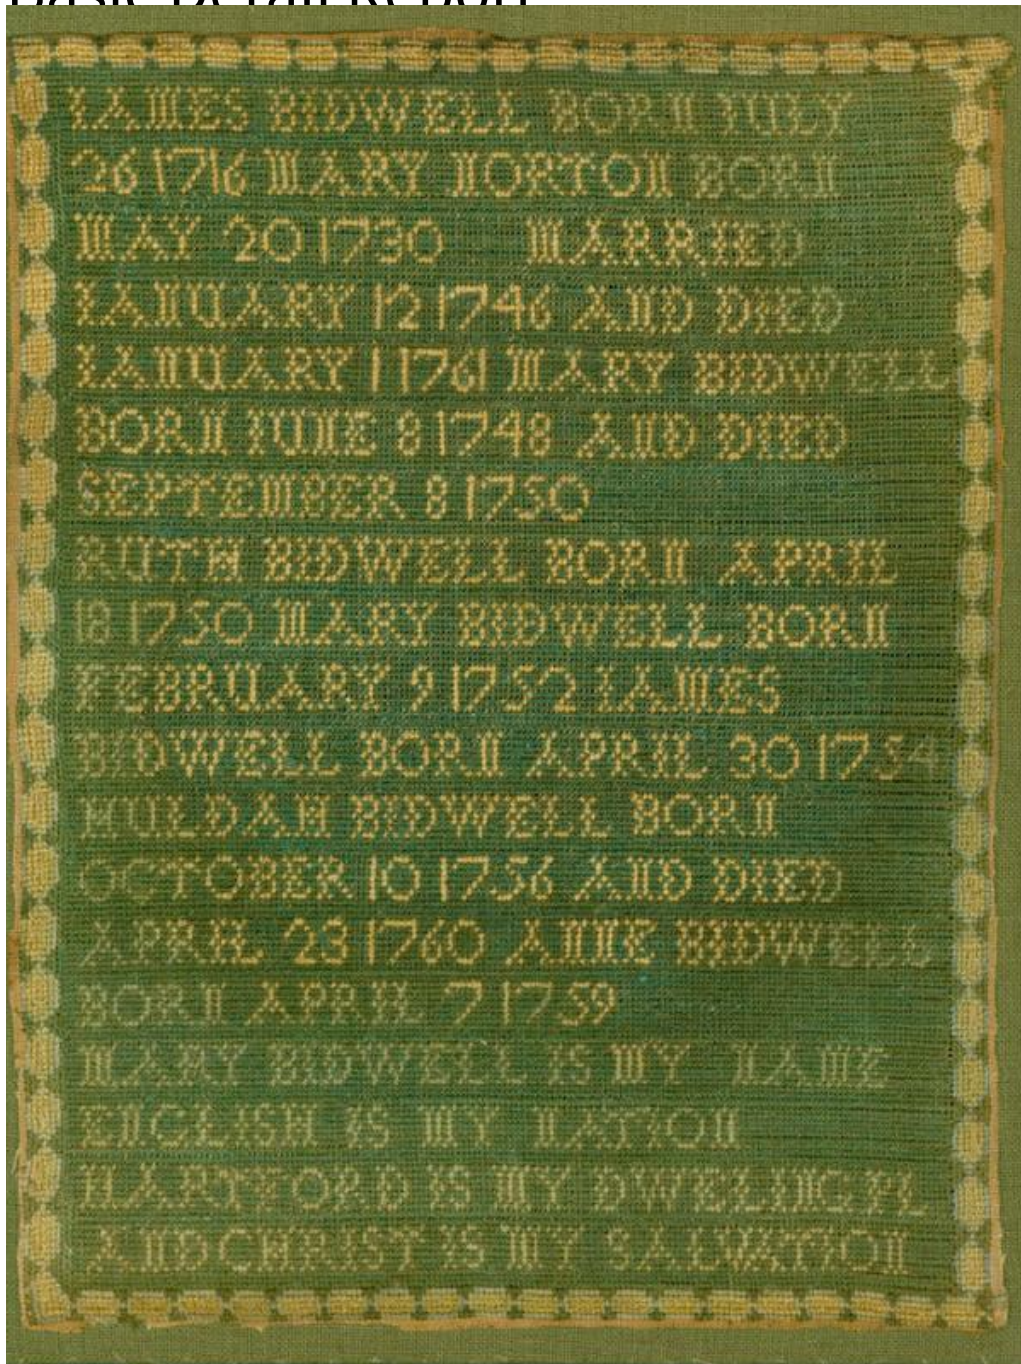 Basic Detail Report
IAMES BIDWELL BORN IULY
26 1716 MARY NORTON BORN
MAY 20 1730 MARRIED
IANUARY 12 1746 AND DIED
IANUARY 1 1761 MARY BIDWELL
BORN IUNE 8 1748 AND DIED
SEPTEMBER 8 1750
RUTH BIDWELL BORN APRIL
18 1750 MARY BIDWELL BORN
FEBRUARY 9 1752 IAMES
BIDWELL BORN APRIL 30 1754
HULDAH BIDWELL BORN
OCTOBER 10 1756 AND DIED
APRIL 23 1760 ANNE BIDWELL
BORN APRIL 7 1759
MARY BIDWELL IS MY NAME
ENGLISH IS MY NATION
HARTFORD IS MY DWELINGPL
AND CHRIST IS MY SALWATION